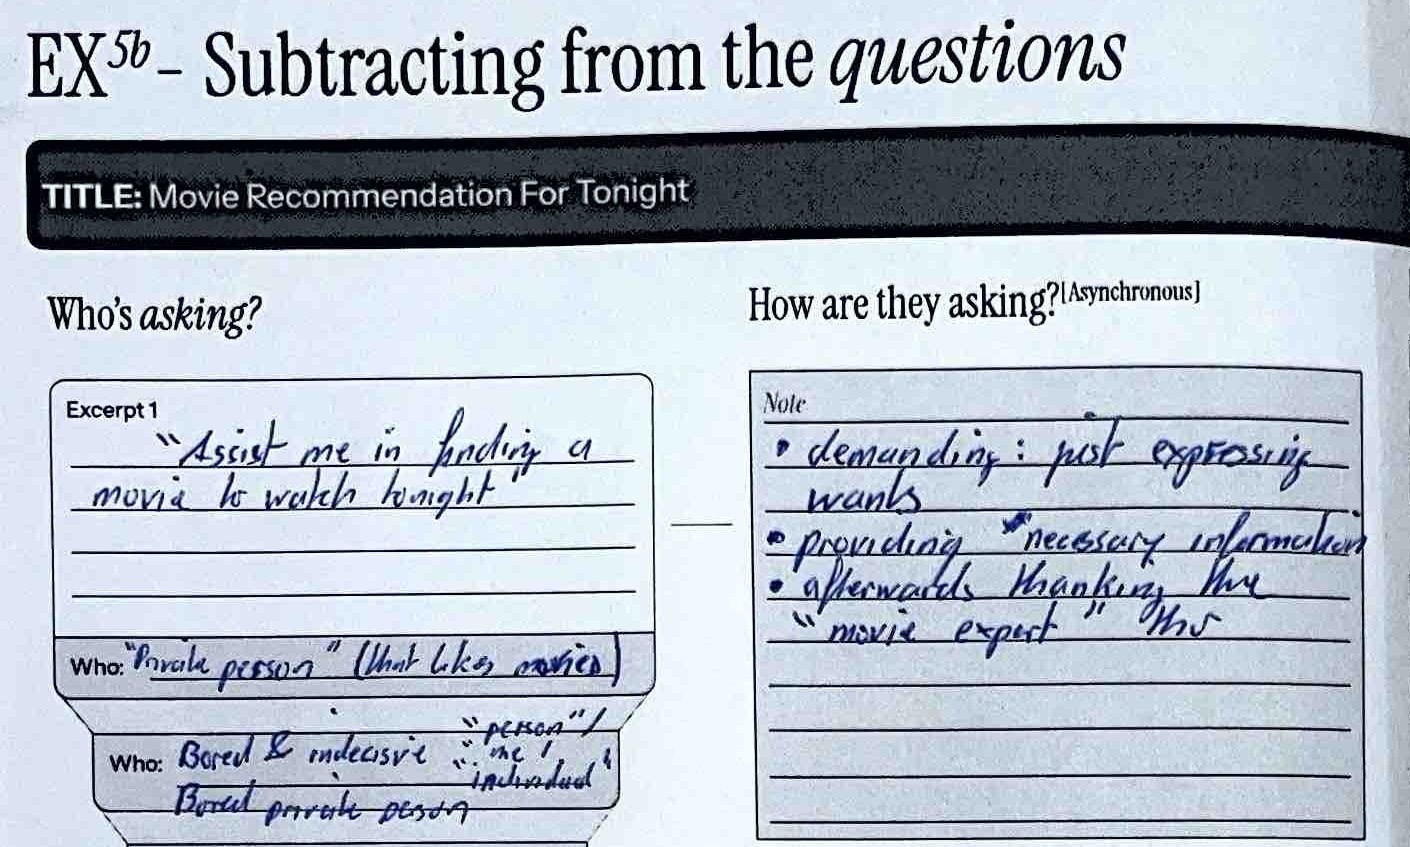 EX5b – Subtracting from the questions
TITLE: Movie Recommendation For Tonight
Who's asking?
Excerpt 1
"Assist me in finding a
movie to watch tonight"
Who: "Private person" (that likes movies)
Who: Bored & indecisive "person"/
"me"/
"individual"
Bored private person
How are they asking?[Asynchronous]
Note
• demanding: just expressing
wants
• providing "necessary information
• afterwards thanking the
"movie expert"